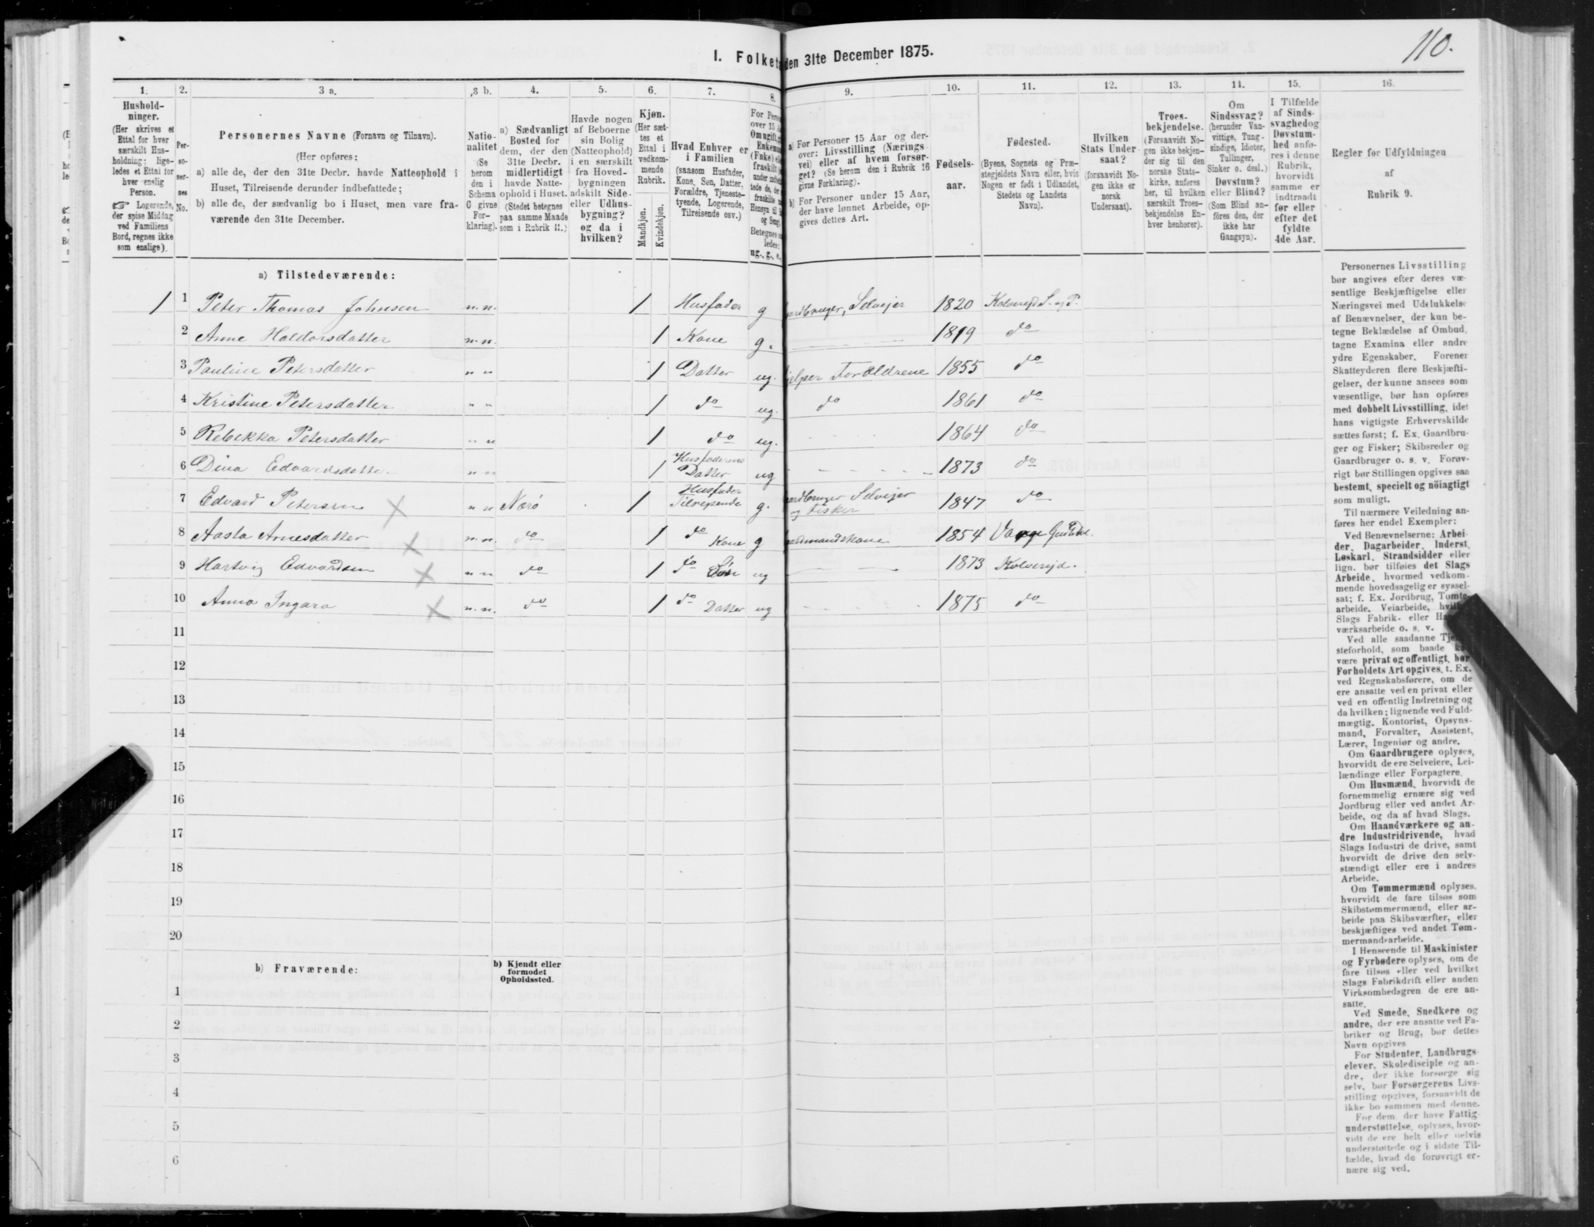 110.
I. Folketa
den 31te December 1875.
1.
2.
3 a.
3 b.
4.
5.
6.
7.
8.
9.
10.
11.
12.
13.
14.
15.
16.
Hushold-
ninger.
(Her skrives et
Ettal for hver
særskilt Hus-
holdning; lige-
ledes et Ettal for
hver enslig
Person.
Logerende,
der spise Middag
ved Familiens
Bord, regnes ikke
som enslige).
Per-
so-
ner-
nes
No.
Personernes Navne (Fornavn og Tilnavn).
(Her opføres:
a) alle de, der den 31te Decbr. havde Natteophold i
Huset, Tilreisende derunder indbefattede;
b) alle de, der sædvanlig bo i Huset, men vare fra-
værende den 31te December.
Natio-
nalitet
(Se
herom
den i
Schema
C givne
For-
klaring).
a) Sædvanligt
Bosted for
dem, der den
31te Decbr.
midlertidigt
havde Natte-
ophold i Huset.
(Stedet betegnes
paa samme Maade
som i Rubrik 11.)
Havde nogen
af Beboerne
sin Bolig
(Natteophold)
i en særskilt
fra Hoved-
bygningen
adskilt Side-
eller Udhus-
bygning?
og da i
hvilken?
Kjøn.
(Her sæt-
tes et
Ettal i
vedkom-
mende
Rubrik.
Mandkjøn.
Kvindekjøn.
Hvad Enhver er
i Familien
(saasom Husfader,
Kone, Søn, Datter,
Forældre, Tjeneste-
tyende, Logerende,
Tilreisende osv.)
a) For Personer 15 Aar og der-
over: Livsstilling (Nærings
vei) eller af hvem forsør-
get? (Se herom den i Rubrik 16
givne Forklaring).
b) For Personer under 15 Aar,
der have lønnet Arbeide, op-
gives dettes Art.
Fødsels-
aar.
Fødested.
(Byens, Sognets og Præ-
stegjeldets Navn eller, hvis
Nogen er født i Udlandet,
Stedets og Landets
Navn).
Hvilken
Stats Under-
saat?
(forsaavidt No-
gen ikke er
norsk
Undersaat).
Troes-
bekjendelse.
(Forsaavidt No-
gen ikke bekjen-
der sig til den
norske Stats-
kirke, anføres
her, til hvilken
særskilt Troes-
bekjendelse En-
hver henhører).
Om
Sindssvag?
(herunder Van-
vittige, Tung-
sindige, Idioter,
Tullinger,
Sinker o. desl.)
Døvstum?
eller Blind?
(Som Blind an-
føres den, der
ikke har
Gangsyn).
I Tilfælde
af Sinds-
svaghed og
Døvstum-
hed anfø-
res i denne
Rubrik,
hvorvidt
samme er
indtraadt
før eller
efter det
fyldte
4de Aar.
Regler for Udfyldningen
af
Rubrik 9.
a) Tilstedeværende:
1 1 Peter Thomas Johnsen n. n. 1 Husfader g Gaardbruger, Selveier 1820 Kolvereid S. og P.
2 Anne Haldorsdatter n. n. 1 Kone g. 1819 do
3 Pauline Petersdatter " " 1 Datter ug. hjelper Forældrene 1855 do
4 Kristine Petersdatter " " 1 do ug. do 1861 do
5 Rebekka Petersdatter " " 1 do ug. 1864 do
6 Dina Edvardsdatter " " 1 Husfaderens Datter ug 1873 do
7 Edvard Petersen " n Nærø 1 Husfader Tilreisende g. Gaardbruger Selveier og Fisker 1847 do
8 Aasta Arnesdatter n. n. do 1 do Kone g Gaardmandskone 1854
9 Hartvig Edvardsen " " do 1 do Søn ug 1873 Kolvereid.
10 Anna Ingara n. n. do 1 do Datter ug 1875 do
11
12
13
14
15
16
17
18
19
20
b) Fraværende:
b) Kjendt eller
formodet
Opholdssted.
1
2
3
4
5
6
Personernes Livsstilling
bør angives efter deres væ-
sentlige Beskjæftigelse eller
Næringsvei med Udelukkelse
af Benævnelser, der kun be-
tegne Beklædelse af Ombud,
tagne Examina eller andre
ydre Egenskaber. Forener
Skatteyderen flere Beskjæfti-
gelser, der kunne ansees som
væsentlige, bør han opføres
med dobbelt Livsstilling, idet
hans vigtigste Erhvervskilde
sættes først; f. Ex. Gaardbru-
ger og Fisker; Skibsreder og
Gaardbruger o. s. v. Forøv-
rigt bør Stillingen opgives saa
bestemt, specielt og nöiagtigt
som muligt.
Til nærmere Veiledning an-
føres her endel Exempler:
Ved Benævnelserne: Arbei-
der, Dagarbeider, Inderst,
Løskarl, Strandsidder eller
lign. bør tilføies det Slags
Arbeide, hvormed vedkom-
mende hovedsagelig er syssel-
sat; f. Ex. Jordbrug, Tomte-
arbeide, Veiarbeide,
Slags Fabrik- eller
værksarbeide o. s. v.
Ved alle saadanne
steforhold, som baade
være privat og offentligt, bør
Forholdets Art opgives, t. Ex.
ved Regnskabsførere, om de
ere ansatte ved en privat eller
ved en offentlig Indretning og
da hvilken; lignende ved Fuld-
mægtig, Kontorist, Opsyns-
mand, Forvalter, Assistent,
Lærer, Ingeniør og andre.
Om Gaardbrugere oplyses,
hvorvidt de ere Selveiere, Lei-
lændinge eller Forpagtere.
Om Husmænd, hvorvidt de
fornemmelig ernære sig ved
Jordbrug eller ved andet Ar-
beide, og da af hvad Slags.
Om Haandværkere og an-
dre Industridrivende, hvad
Slags Industri de drive, samt
hvorvidt de drive den selv-
stændigt eller ere i andres
Arbeide.
Om Tømmermænd oplyses,
hvorvidt de fare tilsøs som
Skibstømmermænd, eller ar-
beide paa Skibsværfter, eller
beskjæftiges ved andet Tøm-
mermandsarbeide.
I Henseende til Maskinister
og Fyrbødere oplyses, om de
fare tilsøs eller ved hvilket
Slags Fabrikdrift eller anden
Virksomhedsgren de ere an-
satte.
Ved Smede, Snedkere og
andre, der ere ansatte ved Fa-
briker og Brug, bør dettes
Navn opgives
For Studenter, Landbrugs-
elever, Skoledisciple og an-
dre, der ikke forsørge sig
selv, bør Forsørgerens Livs-
stilling opgives, forsaavidt de
ikke bo sammen med denne.
For dem, der have Fattig-
understøttelse, oplyses, hvor-
vidt de ere helt eller delvis
understøttede og i sidste Til-
fælde, hvad de forøvrigt er-
nære sig ved.